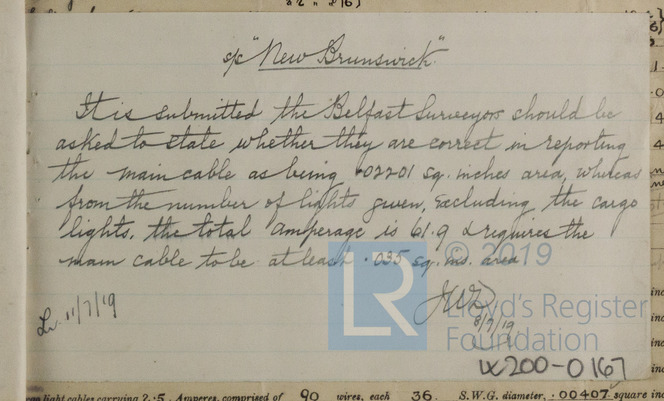 s/s "New Brunswick"
It is submitted the Belfast Surveyors should be
asked to state whether they are correct in reporting
the main cable as being .02201 sq. inches area, whereas
from the number of lights given, excluding the cargo
lights, the total amperage is 61.9 & requires the
main cable to be at least .035 sq. ins. area
8/7/19
11/7/19
LR © 2019
Lloyd's Register
Foundation
W200-0167
light cables carrying 2.5 Amperes, comprised of 90 wires, each 36 S.W.G. diameter, .00407 square